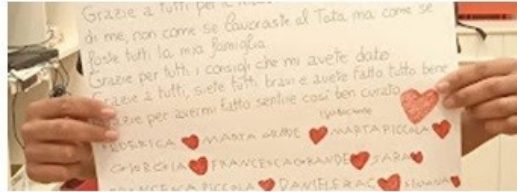 Grazie a tutti per
di me, non come se lavoraste al Tata ma come se
foste tutti la mia famiglia
Grazie per tutti i consigli che mi avete dato
Grazie a tutti, siete tutti bravi e avete fatto tutto bene
Grazie per avermi fatto sentire così ben curato
FEDERICA MARTA GRANDE MARTA PICCOLA
GIORGIA FRANCESCA GRANDE SARA
FRANCESCA PICCOLA DANIELE SILVANA